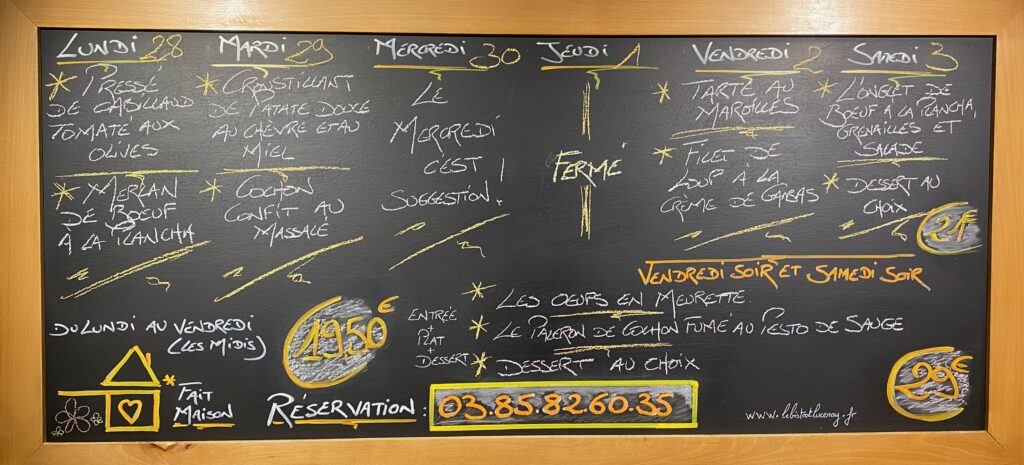 LUNDI 28
* PRESSÉ
DE CABILLAUD
TOMATE AUX
OLIVES
* MERLAN
DE BOEUF
À LA PLANCHA
MARDI 29
* CROUSTILLANT
DE PATATE DOUCE
AU CHÈVRE ET AU
MIEL
* COCHON
CONFIT AU
MASSALÉ
MERCREDI 30
LE
MERCREDI
C'EST
SUGGESTION !
JEUDI 1
FERMÉ
VENDREDI 2
* TARTE AU
MAROILLES
* FILET DE
LOUP À LA
CRÈME DE GAMBAS
SAMEDI 3
* L'ONGLET DE
BOEUF À LA PLANCHA,
GRENAILLES ET
SALADE
* DESSERT AU
CHOIX
21€
VENDREDI SOIR ET SAMEDI SOIR
* LES OEUFS EN MEURETTE
* LE PALERON DE COCHON FUMÉ AU PESTO DE SAUGE
* DESSERT AU CHOIX
29€
DU LUNDI AU VENDREDI
(LES MIDIS)
19.50€
ENTRÉE
+
PLAT
+
DESSERT
* FAIT
MAISON
RÉSERVATION : 03.85.82.60.35
www.lebistrotlucenay.fr